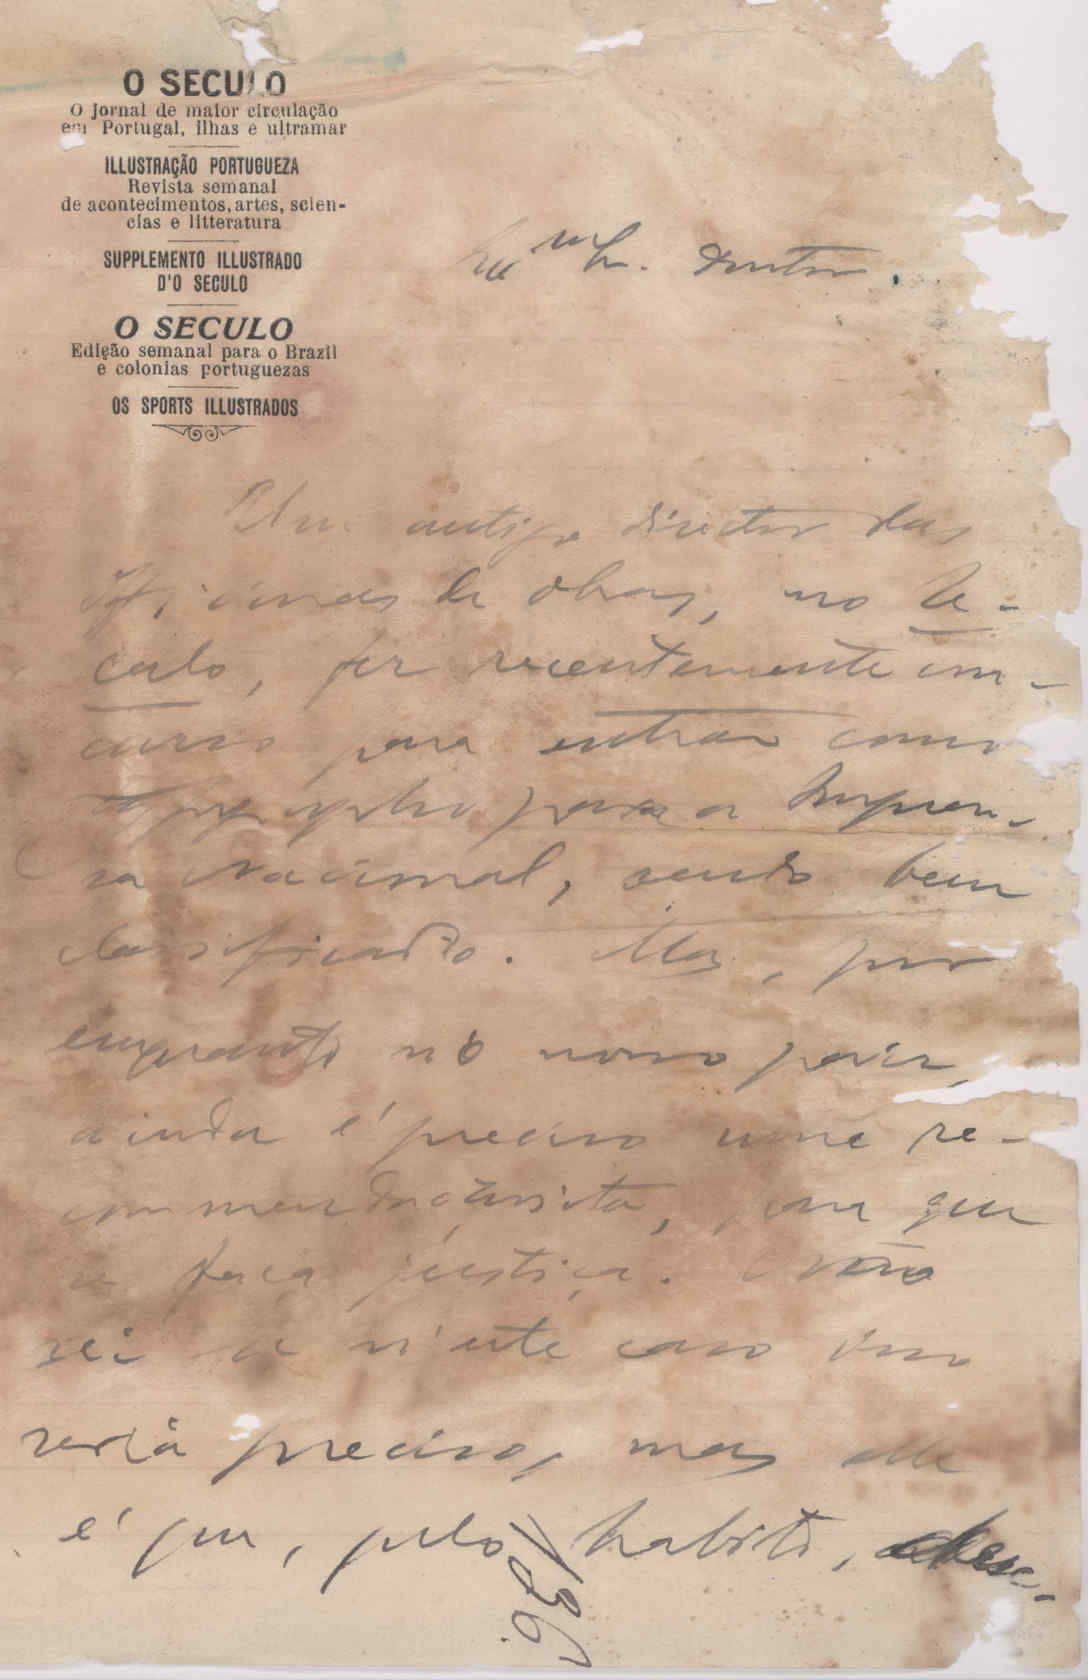 O SECULO
O jornal de maior circulação
em Portugal, ilhas e ultramar
ILLUSTRAÇÃO PORTUGUEZA
Revista semanal
de acontecimentos, artes, scien-
cias e litteratura
SUPPLEMENTO ILLUSTRADO
D'O SECULO
O SECULO
Edição semanal para o Brazil
e colonias portuguezas
OS SPORTS ILLUSTRADOS
Doutor.
Um antigo director das
officinas de obras, no Se-
culo, fez recentemente con-
curso para entrar como
typographo para a Impren-
sa Nacional, sendo bem
classificado. Mas, por
emquanto no nosso paiz,
ainda é preciso uma re-
commendaçãosita, para que
se faça justiça. Não
sei se n'este caso isso
seria preciso, mas elle
é que, pelo habito,
136